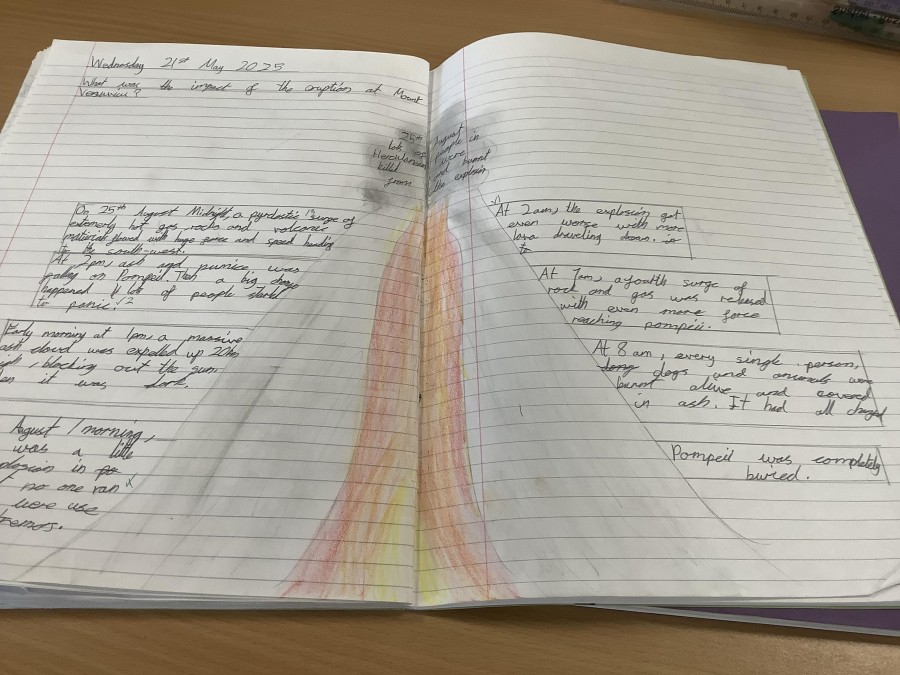 Wednesday 21st May 2025
What was the impact of the eruption at Mount
Vesuvius?
25th August
lots of people in
Herculaneum were
killed and burnt
from the explosin
On 25th August Midnight, a pyroclastic surge of
extremely hot gas rocks and volcanic
material flowed with huge force and speed heading
to the south-west.
At 2pm, ash and pumice was
falling on Pompeii. Then a big change
happened & lots of people started
to panic.
Early morning at 1pm, a massive
ash cloud was expelled up 20km
high, blocking out the sun
it was dark.
August / morning,
was a little
in
no one ran
were use
At 2am, the explosin got
even worse with more
lava traveling down.
At 7am, a fourth surge of
rock and gas was released
with even more force
reaching pompeii.
At 8am, every single person,
dogs and animals were
burnt alive and covered
in ash. It had all changed
Pompeii was completely
buried.